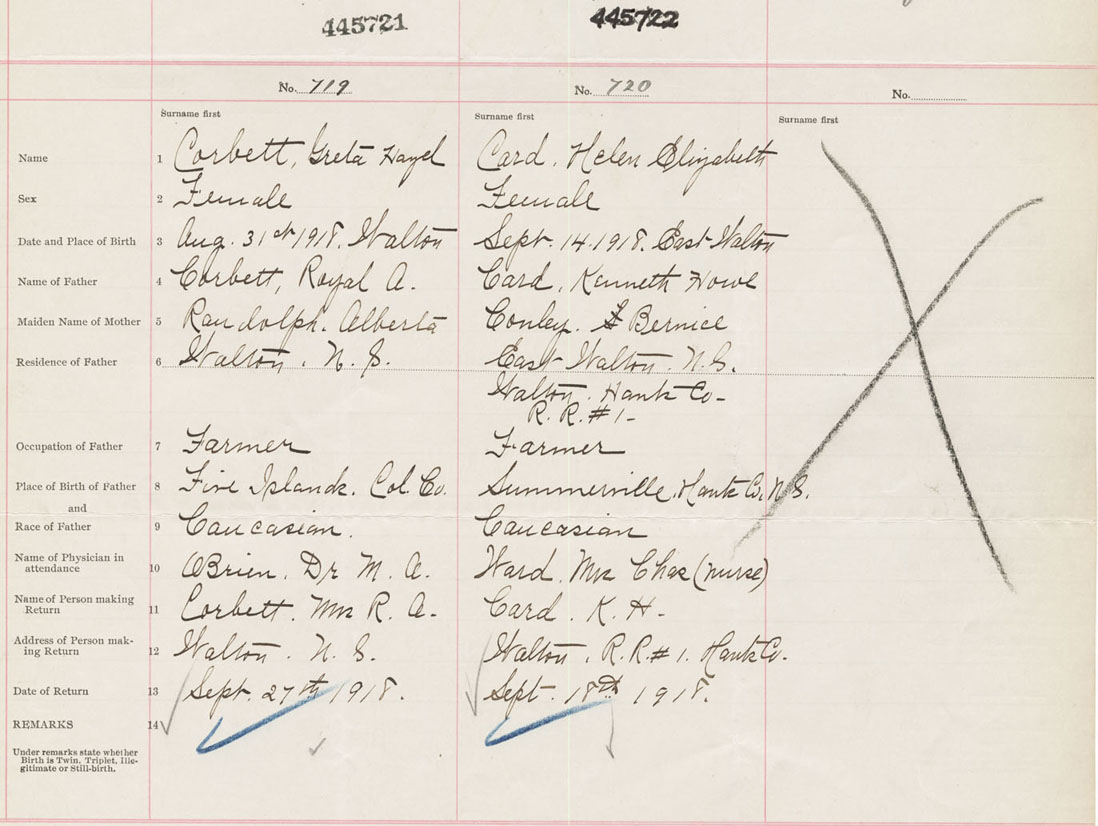 445721 445722
No. 719 No. 720 No.
Surname first Surname first Surname first
Name 1 Corbett, Greta Hazel Card, Helen Elizabeth
Sex 2 Female Female
Date and Place of Birth 3 Aug. 31st 1918. Walton Sept. 14. 1918. East Walton
Name of Father 4 Corbett, Royal A. Card, Kenneth Howe
Maiden Name of Mother 5 Randolph. Alberta Conley. Bernice
Residence of Father 6 Walton. N. S. East Walton. N. S.
Walton. Hants Co-
R. R. #1-
Occupation of Father 7 Farmer Farmer
Place of Birth of Father 8 Five Islands. Col. Co. Summerville, Hants Co. N. S.
and
Race of Father 9 Caucasian. Caucasian
Name of Physician in
attendance 10 OBrien. Dr M. A. Ward. Mrs Chas (nurse)
Name of Person making
Return 11 Corbett. Mrs R. A. Card. K. H-
Address of Person mak-
ing Return 12 Walton. N. S. Walton. R. R. #1. Hants Co.
Date of Return 13 Sept. 27th 1918. Sept. 18th 1918.
REMARKS 14
Under remarks state whether
Birth is Twin, Triplet, Ille-
gitimate or Still-birth.